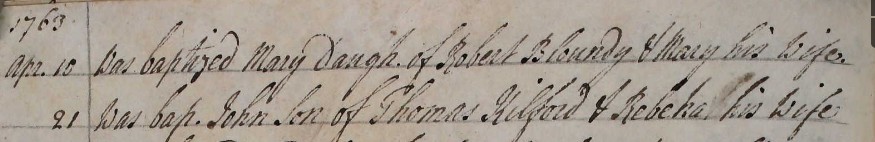 1763
Apr. 10 Was baptized Mary Daugh. of Robert Bloundy & Mary his Wife.
21 Was bap. John Son of Thomas Kilford & Rebeka his Wife